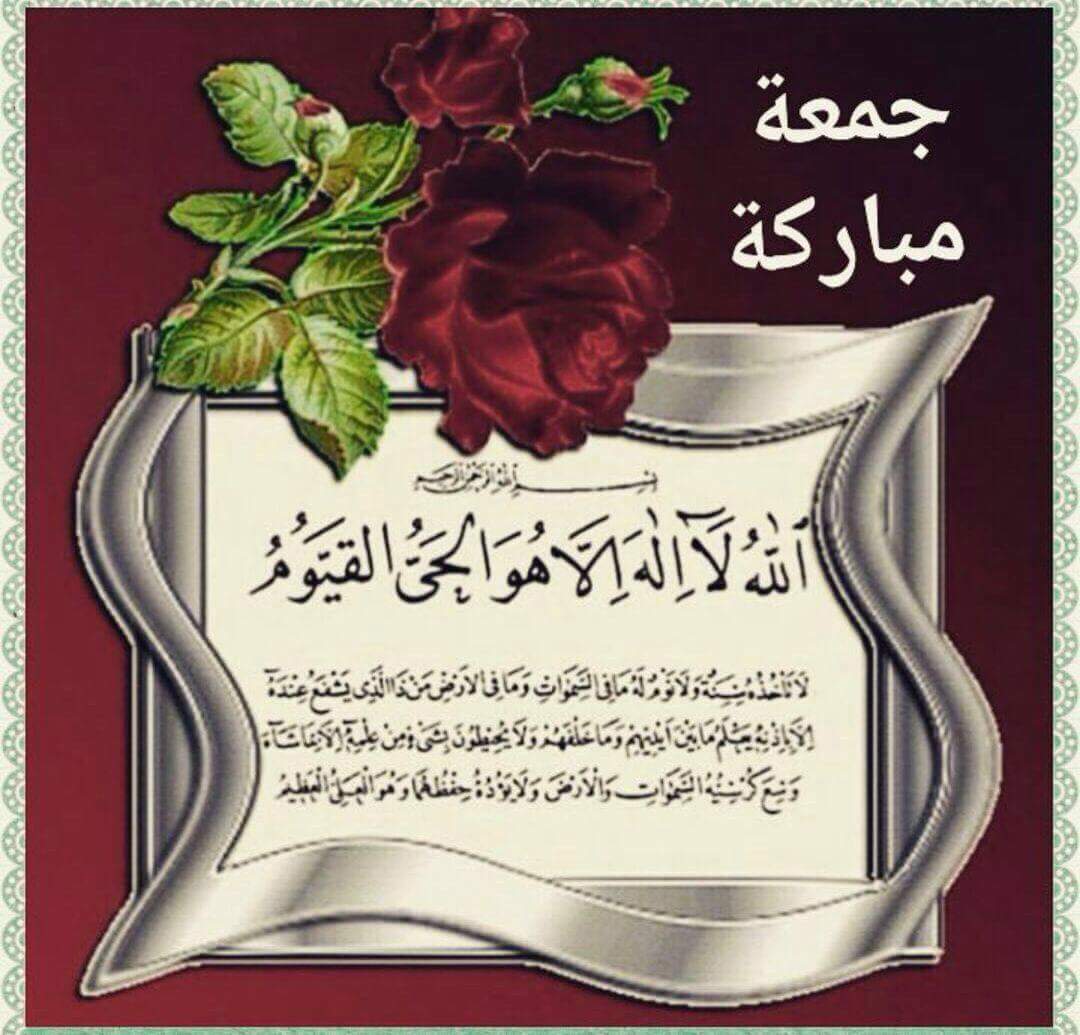 جمعة
مباركة
بسم الله الرحمن الرحيم
اَللّٰهُ لَآ اِلٰهَ اِلَّا هُوَ الْحَيُّ الْقَيُّومُ
لَا تَأْخُذُهُ سِنَةٌ وَلَا نَوْمٌ لَهُ مَا فِي السَّمٰوَاتِ وَمَا فِي الْاَرْضِ مَنْ ذَا الَّذِي يَشْفَعُ عِنْدَهٓ
اِلَّا بِاِذْنِهِ يَعْلَمُ مَا بَيْنَ اَيْدِيهِمْ وَمَا خَلْفَهُمْ وَلَا يُحِيطُونَ بِشَيْءٍ مِنْ عِلْمِهٓ اِلَّا بِمَا شَآءَ
وَسِعَ كُرْسِيُّهُ السَّمٰوَاتِ وَالْاَرْضَ وَلَا يَؤُدُهُ حِفْظُهُمَا وَهُوَ الْعَلِيُّ الْعَظِيمُ